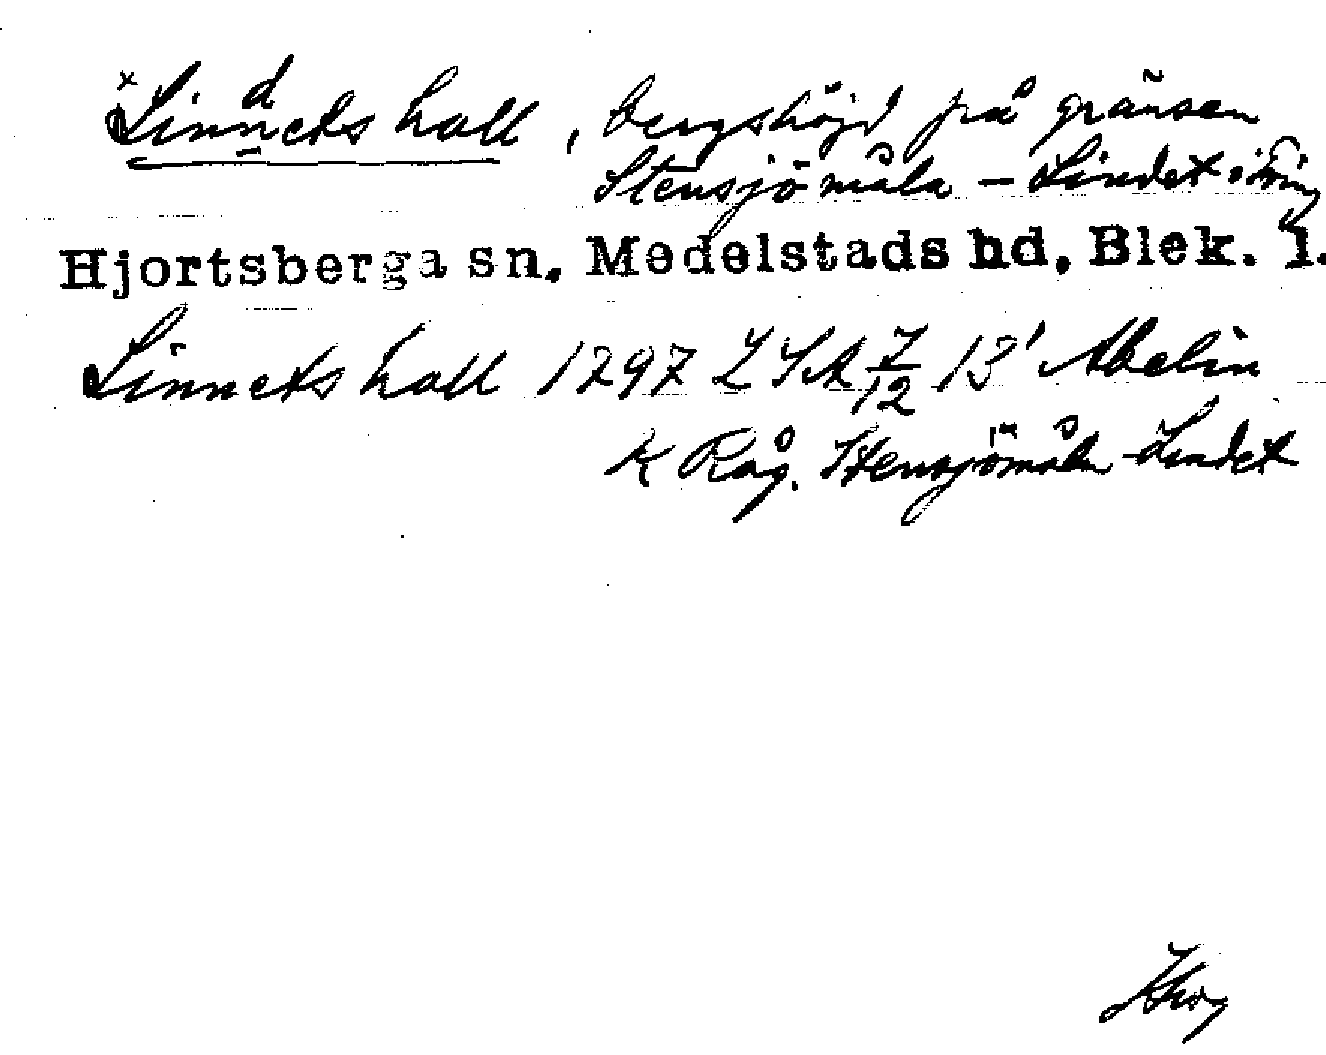 × Linnets hall, bergshöjd på gränsen
d
Stensjömåla – Lindet i Tving
Hjortsberga sn, Medelstads hd, Blek. l.
Linnets hall 1297 Z 7/12 13' Abelin
K Råg. Stensjömåla - Lindet